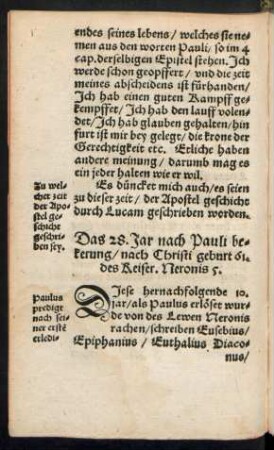 endes seines lebens/ welches sie ne-
men aus den worten Pauli/ so im 4
cap. derselbigen Epistel stehen. Ich
werde schon geopffert/ vnd die zeit
meines abscheidens ist fürhanden/
Ich hab einen guten Kampff ge-
kempffet/ Ich hab den lauff volen-
det/ Ich hab glauben gehalten/ hin
furt ist mir bey gelegt/ die krone der
Gerechtigkeit etc. Etliche haben
andere meinung/ darumb mag es
ein jeder halten wie er wil.
Zu wel-
cher zeit
der Apo-
stel ge-
schichte
geschri-
ben sey.
Es düncket mich auch/ es seien
zu dieser zeit/ der Apostel geschicht
durch Lucam geschrieben worden.
Das 28. Jar nach Pauli be-
kerung/ nach Christi geburt 61.
des Keiser. Neronis 5.
Paulus
predigt
nach sei-
ner erstē
erledi-
DJese hernachfolgende 10.
jar/ als Paulus erlöset wur-
de von des Lewen Neronis
rachen/ schreiben Eusebius/
Epiphanius/ Euthalius Diaco-
nus/